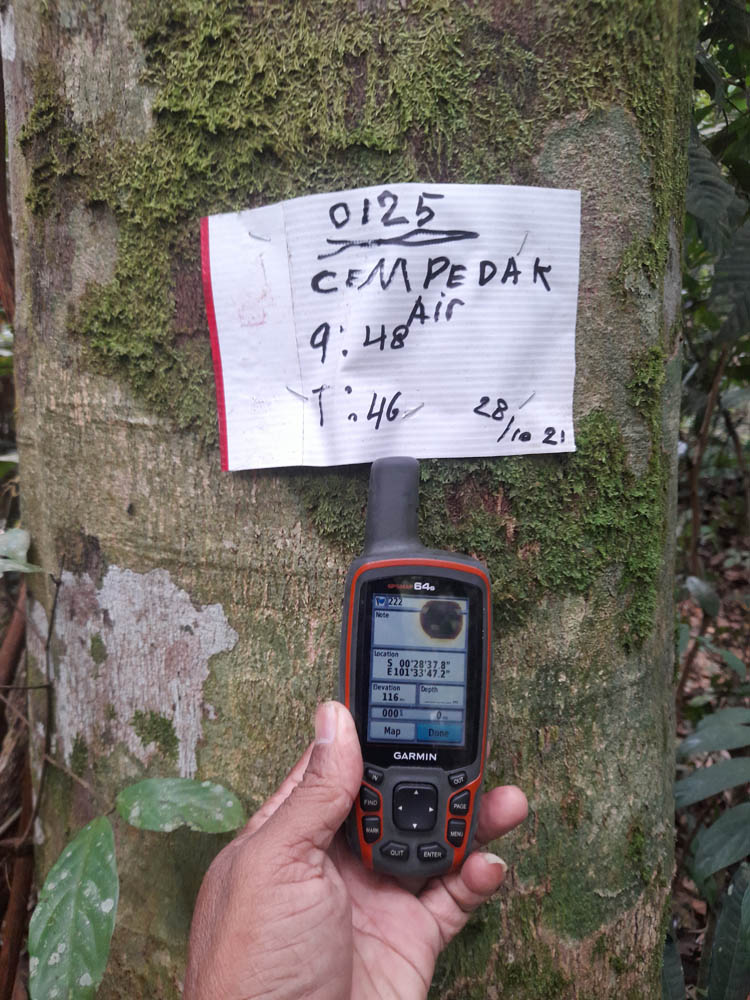 0125
CEMPEDAK
Air
9: 48
T: 46
28/10 21
64s
222
Note
Location
S 00°28'37.8"
E101°33'47.2"
Elevation
Depth
116m
Map
Done
GARMIN
IN
OUT
FIND
PAGE
MARK
MENU
QUIT
ENTER